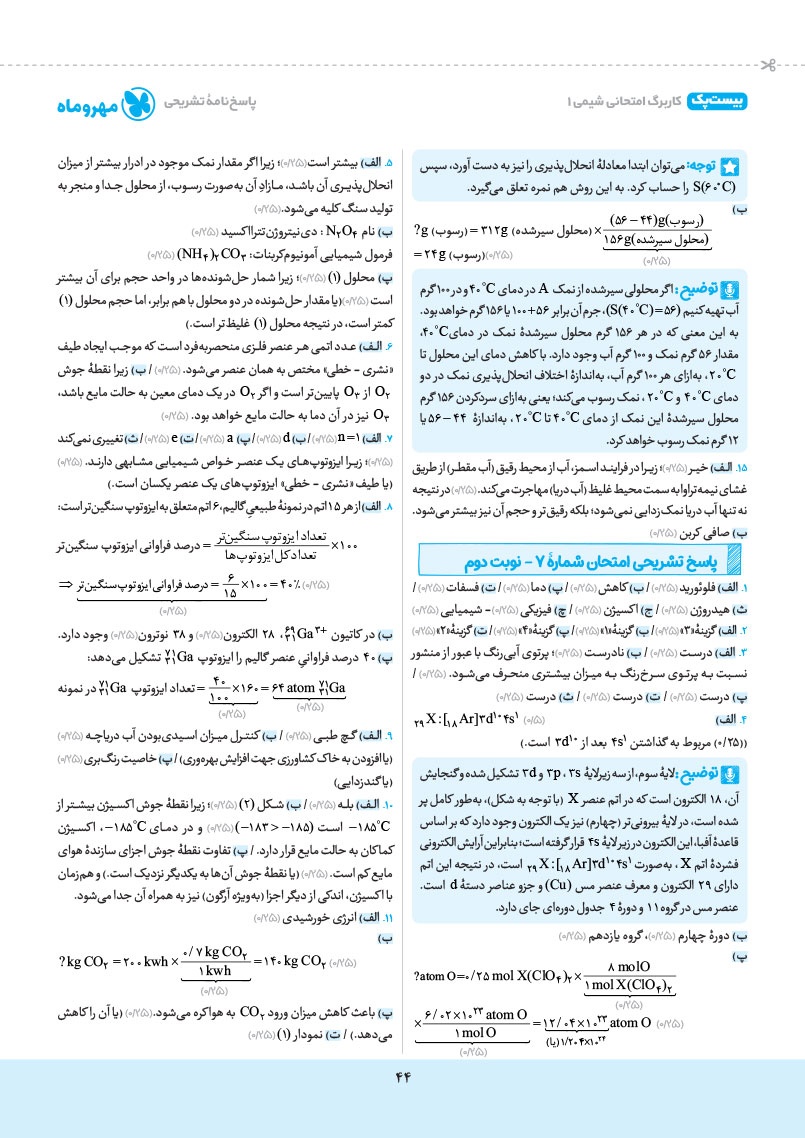 بیست‌پک کاربرگ امتحانی شیمی ۱
پاسخ‌نامهٔ تشریحی
مهروماه
توجه: می‌توان ابتدا معادلهٔ انحلال‌پذیری را نیز به دست آورد، سپس
S(۶۰°C) را حساب کرد. به این روش هم نمره تعلق می‌گیرد.
ب)
?g (رسوب) = ۳۱۲g (محلول سیرشده) × (۵۶ − ۴۴)g(رسوب) / ۱۵۶g(محلول سیرشده) (۰/۲۵)
= ۲۴g(رسوب) (۰/۲۵)
توضیح: اگر محلولی سیرشده از نمک A در دمای ۴۰°C و در ۱۰۰ گرم
آب تهیه کنیم (S(۴۰°C)=۵۶)، جرم آن برابر ۵۶+۱۰۰ یا ۱۵۶ گرم خواهد بود.
به این معنی که در هر ۱۵۶ گرم محلول سیرشدهٔ نمک در دمای ۴۰°C،
مقدار ۵۶ گرم نمک و ۱۰۰ گرم آب وجود دارد. با کاهش دمای این محلول تا
۲۰°C، به‌ازای هر ۱۰۰ گرم آب، به‌اندازهٔ اختلاف انحلال‌پذیری نمک در دو
دمای ۴۰°C و ۲۰°C، نمک رسوب می‌کند؛ یعنی به‌ازای سردکردن ۱۵۶ گرم
محلول سیرشدهٔ این نمک از دمای ۴۰°C تا ۲۰°C، به‌اندازهٔ ۴۴ − ۵۶ یا
۱۲ گرم نمک رسوب خواهد کرد.
۱۵. الف) خیر (۰/۲۵)؛ زیرا در فرایند اسمز، آب از محیط رقیق (آب مقطر) از طریق
غشای نیمه‌تراوا به سمت محیط غلیظ (آب دریا) مهاجرت می‌کند. (۰/۲۵) در نتیجه
نه تنها آب دریا نمک‌زدایی نمی‌شود؛ بلکه رقیق‌تر و حجم آن نیز بیشتر می‌شود.
ب) صافی کربن (۰/۲۵)
پاسخ تشریحی امتحان شمارهٔ ۷ – نوبت دوم
۱. الف) فلوئورید (۰/۲۵) / ب) کاهش (۰/۲۵) / پ) دما (۰/۲۵) / ت) فسفات (۰/۲۵) /
ث) هیدروژن (۰/۲۵) / ج) اکسیژن (۰/۲۵) / چ) فیزیکی (۰/۲۵) – شیمیایی (۰/۲۵)
۲. الف) گزینهٔ «۳» (۰/۲۵) / ب) گزینهٔ «۱» (۰/۲۵) / پ) گزینهٔ «۴» (۰/۲۵) / ت) گزینهٔ «۲» (۰/۲۵)
۳. الف) درست (۰/۲۵) / ب) نادرست (۰/۲۵)؛ پرتوی آبی‌رنگ با عبور از منشور
نسبت به پرتوی سرخ‌رنگ به میزان بیشتری منحرف می‌شود. (۰/۲۵) /
پ) درست (۰/۲۵) / ت) درست (۰/۲۵) / ث) درست (۰/۲۵)
۴. الف) ₂₉X : [₁₈Ar]۳d¹⁰ ۴s¹ (۰/۵)
((۰/۲۵) مربوط به گذاشتن ۴s¹ بعد از ۳d¹⁰ است.)
توضیح: لایهٔ سوم، از سه زیرلایهٔ ۳s، ۳p و ۳d تشکیل شده و گنجایش
آن، ۱۸ الکترون است که در اتم عنصر X (با توجه به شکل)، به‌طور کامل پر
شده است، در لایهٔ بیرونی‌تر (چهارم) نیز یک الکترون وجود دارد که بر اساس
قاعدهٔ آفبا، این الکترون در زیرلایهٔ ۴s قرار گرفته است؛ بنابراین آرایش الکترونی
فشردهٔ اتم X، به‌صورت ₂₉X : [₁₈Ar]۳d¹⁰ ۴s¹ است، در نتیجه این اتم
دارای ۲۹ الکترون و معرف عنصر مس (Cu) و جزو عناصر دستهٔ d است.
عنصر مس در گروه ۱۱ و دورهٔ ۴ جدول دوره‌ای جای دارد.
ب) دورهٔ چهارم (۰/۲۵)، گروه یازدهم (۰/۲۵)
پ)
?atom O=۰/۲۵ mol X(ClO₄)₂ × ۸ molO / ۱ mol X(ClO₄)₂ (۰/۲۵)
× ۶/۰۲×۱۰²³ atom O / ۱ mol O (۰/۲۵) = ۱۲/۰۴×۱۰²³ atom O (۰/۲۵)
(یا) ۱/۲۰۴×۱۰²⁴
۵. الف) بیشتر است (۰/۲۵)؛ زیرا اگر مقدار نمک موجود در ادرار بیشتر از میزان
انحلال‌پذیری آن باشد، مازادِ آن به‌صورت رسوب، از محلول جدا و منجر به
تولید سنگ کلیه می‌شود. (۰/۲۵)
ب) نام N₂O₄ : دی‌نیتروژن‌تترااکسید (۰/۲۵)
فرمول شیمیایی آمونیوم‌کربنات: (NH₄)₂CO₃ (۰/۲۵)
پ) محلول (۱) (۰/۲۵)؛ زیرا شمار حل‌شونده‌ها در واحد حجم برای آن بیشتر
است (۰/۲۵) (یا مقدار حل‌شونده در دو محلول با هم برابر، اما حجم محلول (۱)
کمتر است، در نتیجه محلول (۱) غلیظ‌تر است.)
۶. الف) عدد اتمی هر عنصر فلزی منحصربه‌فرد است که موجب ایجاد طیف
«نشری – خطی» مختص به همان عنصر می‌شود. (۰/۲۵) / ب) زیرا نقطهٔ جوش
O₂ از O₃ پایین‌تر است و اگر O₂ در یک دمای معین به حالت مایع باشد،
O₃ نیز در آن دما به حالت مایع خواهد بود. (۰/۲۵)
۷. الف) n=۱ (۰/۲۵) / ب) d (۰/۲۵) / پ) a (۰/۲۵) / ت) e (۰/۲۵) / ث) تغییری نمی‌کند
(۰/۲۵)؛ زیرا ایزوتوپ‌های یک عنصر خواص شیمیایی مشابهی دارند. (۰/۲۵)
(یا طیف «نشری – خطی» ایزوتوپ‌های یک عنصر یکسان است.)
۸. الف) از هر ۱۵ اتم در نمونهٔ طبیعیِ گالیم، ۶ اتم متعلق به ایزوتوپ سنگین‌تر است:
درصد فراوانی ایزوتوپ سنگین‌تر = تعداد ایزوتوپ سنگین‌تر / تعداد کل ایزوتوپ‌ها ×۱۰۰
⇒ درصد فراوانی ایزوتوپ سنگین‌تر = ۶/۱۵ ×۱۰۰ = ۴۰٪ (۰/۲۵)
(۰/۲۵)
ب) در کاتیون ⁶⁹₃₁Ga³⁺، ۲۸ الکترون (۰/۲۵) و ۳۸ نوترون (۰/۲۵) وجود دارد.
پ) ۴۰ درصد فراوانی عنصر گالیم را ایزوتوپ ⁷¹₃₁Ga تشکیل می‌دهد:
تعداد ایزوتوپ ⁷¹₃₁Ga در نمونه = ۴۰/۱۰۰ ×۱۶۰ = ۶۴ atom ⁷¹₃₁Ga
(۰/۲۵) (۰/۲۵)
۹. الف) گچ طبی (۰/۲۵) / ب) کنترل میزان اسیدی‌بودن آب دریاچه (۰/۲۵)
(یا افزودن به خاک کشاورزی جهت افزایش بهره‌وری) / پ) خاصیت رنگ‌بری (۰/۲۵)
(یا گندزدایی)
۱۰. الف) بله (۰/۲۵) / ب) شکل (۲) (۰/۲۵)؛ زیرا نقطهٔ جوش اکسیژن بیشتر از
−۱۸۵°C است (−۱۸۳ > −۱۸۵) (۰/۲۵) و در دمای −۱۸۵°C، اکسیژن
کماکان به حالت مایع قرار دارد. / پ) تفاوت نقطهٔ جوش اجزای سازندهٔ هوای
مایع کم است. (۰/۲۵) (یا نقطهٔ جوش آن‌ها به یکدیگر نزدیک است.) و هم‌زمان
با اکسیژن، اندکی از دیگر اجزا (به‌ویژه آرگون) نیز به همراه آن جدا می‌شود.
۱۱. الف) انرژی خورشیدی (۰/۲۵)
ب)
?kg CO₂ = ۲۰۰ kwh × ۰/۷ kg CO₂ / ۱ kwh = ۱۴۰ kg CO₂ (۰/۲۵)
(۰/۲۵)
پ) باعث کاهش میزان ورود CO₂ به هواکره می‌شود. (۰/۲۵) (یا آن را کاهش
می‌دهد.) / ت) نمودار (۱) (۰/۲۵)
۴۴